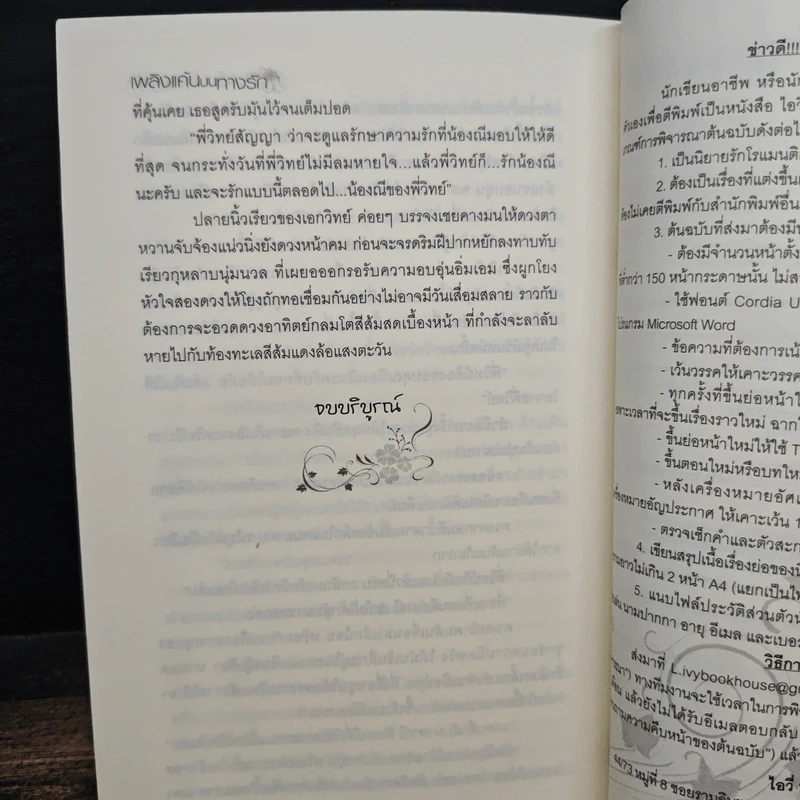 เพลิงแค้นบนทางรัก
ที่คุ้นเคย เธอสูดรับมันไว้จนเต็มปอด
“พี่วิทย์สัญญา ว่าจะดูแลรักษาความรักที่น้องณีมอบให้ให้ดี
ที่สุด จนกระทั่งวันที่พี่วิทย์ไม่มีลมหายใจ...แล้วพี่วิทย์ก็...รักน้องณี
นะครับ และจะรักแบบนี้ตลอดไป...น้องณีของพี่วิทย์”
ปลายนิ้วเรียวของเอกวิทย์ ค่อยๆ บรรจงเชยคางมนให้ดวงตา
หวานจับจ้องแน่วนิ่งยังดวงหน้าคม ก่อนจะจรดริมฝีปากหยักลงทาบทับ
เรียวกุหลาบนุ่มนวล ที่เผยอออกรอรับความอบอุ่นอิ่มเอม ซึ่งผูกโยง
หัวใจสองดวงให้โยงถักทอเชื่อมกันอย่างไม่อาจมีวันเสื่อมสลาย ราวกับ
ต้องการจะอวดดวงอาทิตย์กลมโตสีส้มสดเบื้องหน้า ที่กำลังจะลาลับ
หายไปกับท้องทะเลสีส้มแดงล้อแสงตะวัน
จบบริบูรณ์
ข่าวดี!!!
นักเขียนอาชีพ หรือนัก
ตัวเองเพื่อตีพิมพ์เป็นหนังสือ ไอวี
เกณฑ์การพิจารณาต้นฉบับดังต่อไ
1. เป็นนิยายรักโรแมนติ
2. ต้องเป็นเรื่องที่แต่งขึ้น
ต้องไม่เคยตีพิมพ์กับสำนักพิมพ์อื่น
3. ต้นฉบับที่ส่งมาต้องมี
- ต้องมีจำนวนหน้าตั้ง
ที่ต่ำกว่า 150 หน้ากระดาษนั้น ไม่ส
- ใช้ฟอนต์ Cordia U
โปรแกรม Microsoft Word
- ข้อความที่ต้องการเน้
- เว้นวรรคให้เคาะวรรค
- ทุกครั้งที่ขึ้นย่อหน้าให
เพาะเวลาที่จะขึ้นเรื่องราวใหม่ ฉากใ
- ขึ้นย่อหน้าใหม่ให้ใช้ T
- ขึ้นตอนใหม่หรือบทให
- หลังเครื่องหมายอัศเ
เครื่องหมายอัญประกาศ ให้เคาะเว้น 1
- ตรวจเช็กคำและตัวสะก
4. เขียนสรุปเนื้อเรื่องย่อของนิ
ความยาวไม่เกิน 2 หน้า A4 (แยกเป็นไฟ
5. แนบไฟล์ประวัติส่วนตัวน
นามปากกา อายุ อีเมล และเบอร
วิธีกา
ส่งมาที่ L.ivybookhouse@g
ทางทีมงานจะใช้เวลาในการพิ
แล้วยังไม่ได้รับอีเมลตอบกลับ
ความคืบหน้าของต้นฉบับ”) แล้ว
44/73 หมู่ที่ 8 ซอย
ไอวี